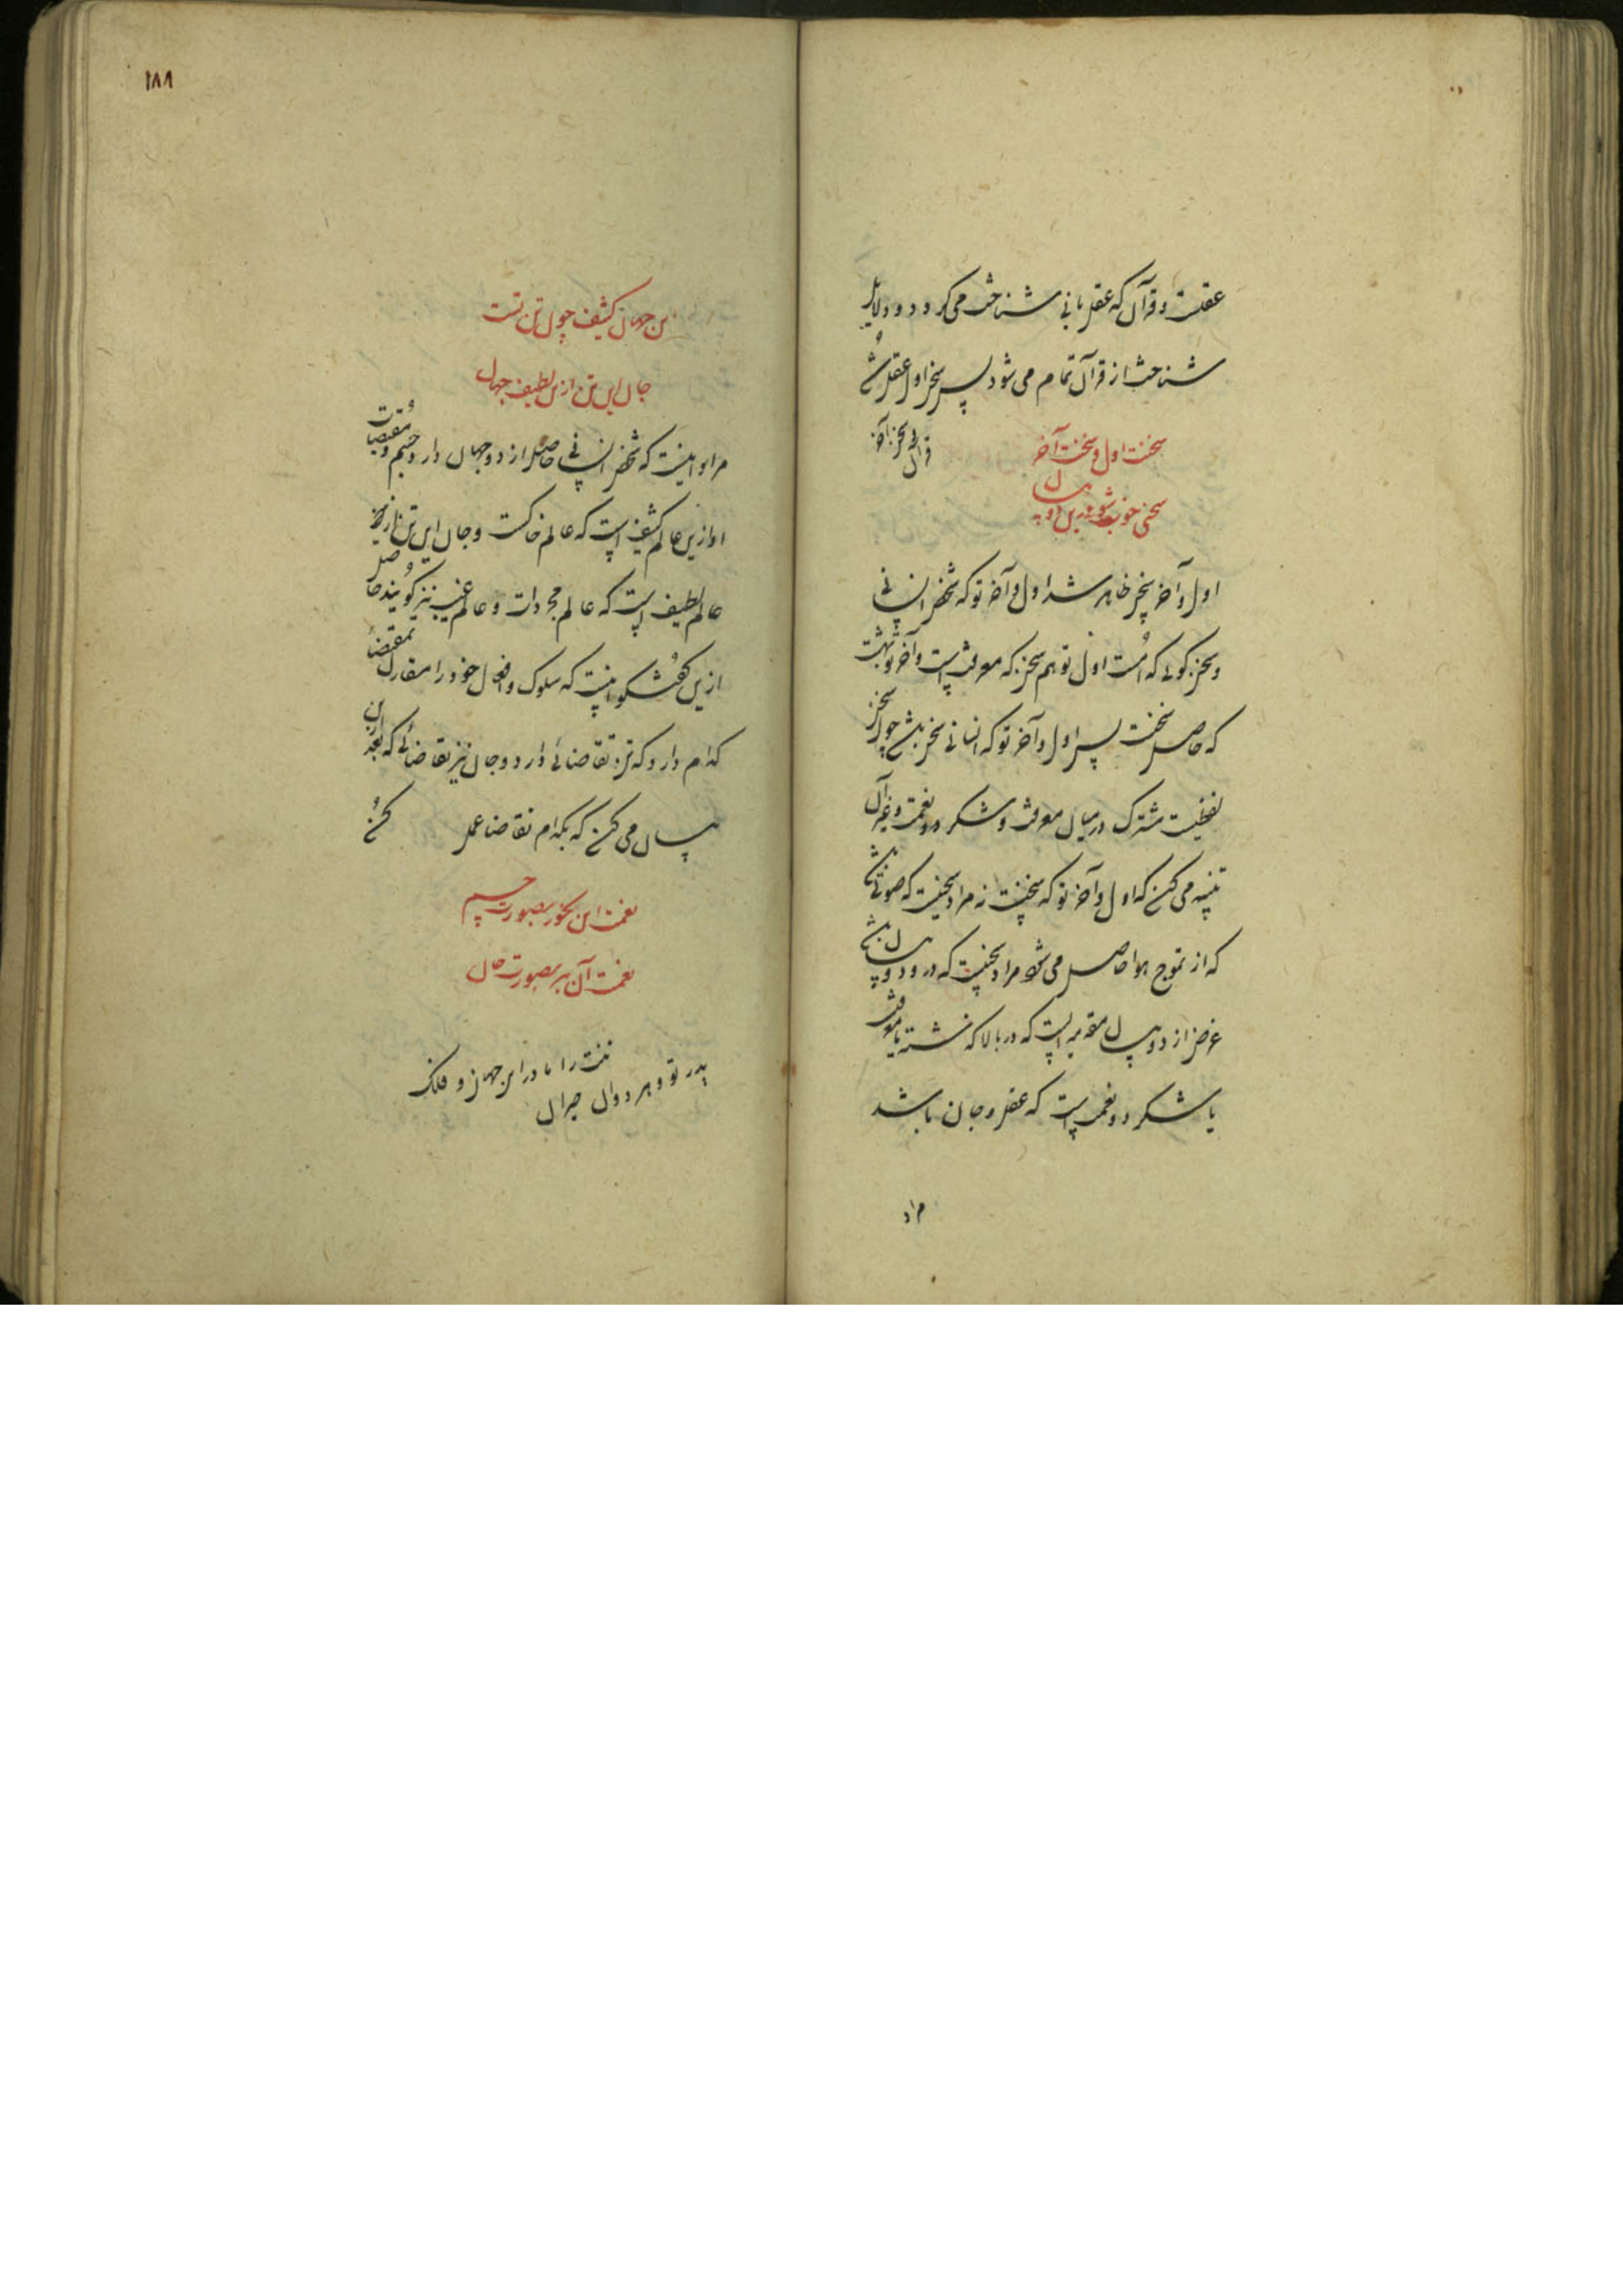 عقلست و قرآن که عقل بانی شناخت می‌گردد و دلایل
شناخت از قرآن تمام می‌شود پس سخن اول عقل باشد
و سخن آخر قرآن
سخنت اول و سخنت آخر
سخنی خوب شود درین دو میان
اول و آخر سخن ظاهر شد اول و آخر تو که شخص انسانی
و سخن گوی که است اول تو هم سخن که معرفت است و آخر تو
که حاصل سخنت پس اول و آخر تو که انسانی سخن باشد چون سخن
لفظیست مشترک در میان معرفت و شکر و نعمت و غیر آن
تنبیه می‌کند که اول و آخر تو که سخنست نه مراد سخنیست که صوتی باشد
که از تموج هوا حاصل می‌شود مراد سخنیست که در دو میان باشد
غرض از دو میان مقدمه است که در بالا گذشته یا معرفت
یا شکر دو نعمت است که عقل و جان باشد
مراد
۱۸۸
زین جهان کثیف چون تن تست
جان این تن ازین لطیف جهان
مراد اینست که شخص انسانی حاصل از دو جهان دارد جسم و مقتضیات
او ازین عالم کثیف است که عالم خاکست و جان این تن تاریک از
عالم لطیف است که عالم مجردات و عالم غیب نیز گویند حاصل
ازین گفتگو اینست که سلوک و افعال خود را مقارن بمقتضای
کدام دارد که تن تقاضائی دارد و جان نیز تقاضائی که بعد ازین
بیان می‌کند که بکدام تقاضا عمل کند
نعمت این بخور بصورت جسم
نعمت آن ببر بصورت جان
تنت را مادر این جهان و فلک
پدر تو و هر دوان حیران